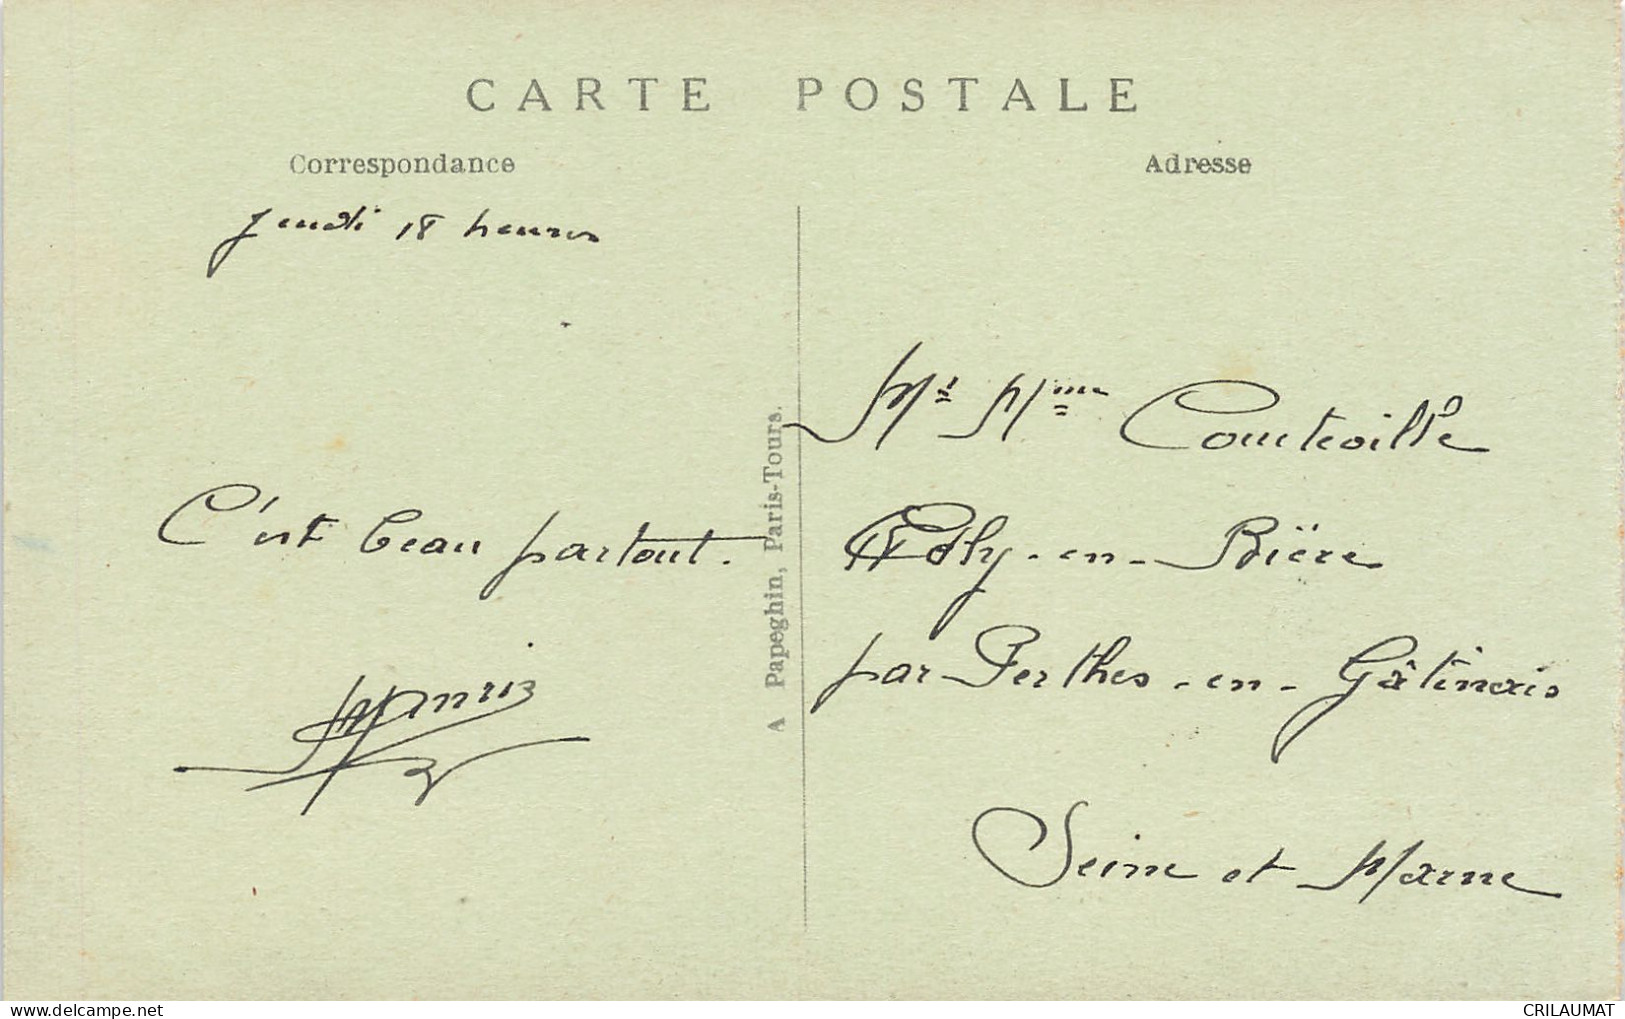 CARTE POSTALE
Correspondance
Adresse
Jeudi 18 heures
C'est beau partout.
A Papeghin, Paris-Tours.
Mr Mme Courteville
-en-Bière
par Perthes-en-Gâtinais
Seine et Marne
CRILAUMAT